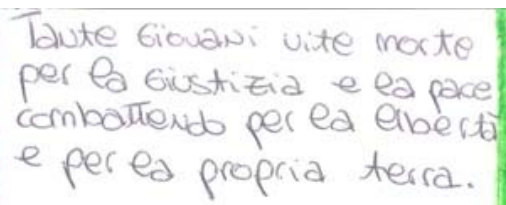 Tante Giovani vite morte
per la Giustizia e la pace
combattendo per la libertà
e per la propria terra.